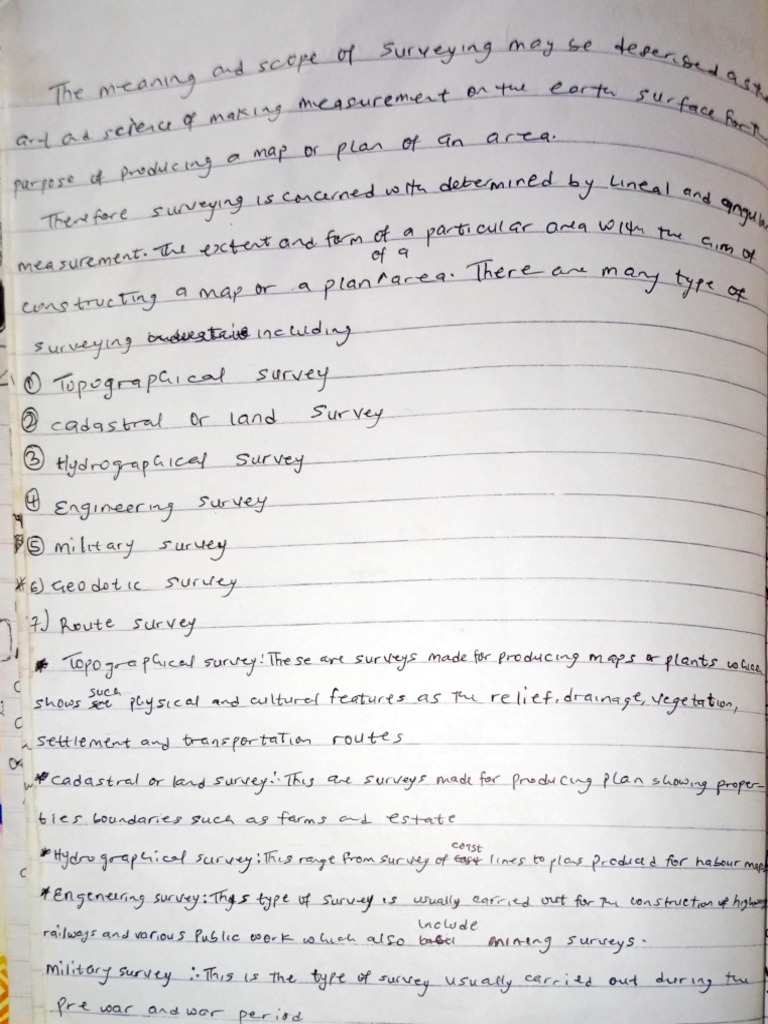 The meaning and scope of surveying may be descriebed as the
art ad science of making measurement on the earth surface for the
purpose of producing a map or plan of an area.
Therefore surveying is concerned with determined by lineal and angular
measurement. The extent and form of a particular area with the aim of
constructing a map or a plan of a area. There are many type of
surveying including
① Topographical survey
② cadastral or land Survey
③ Hydrographical survey
④ Engineering survey
⑤ military survey
6) Geodotic survey
7) Route survey
* Topographical survey: These are surveys made for producing maps or plants which
shows such physical and cultural features as the relief, drainage, vegetation,
settlement and transportation routes
* cadastral or land survey:- This are surveys made for producing plan showing proper-
ties boundaries such as farms and estate
* Hydrographical survey: This range from survey of coast lines to plans produced for habour map
* Engeneering survey: This type of survey is usually carried out for the construction of highway
railways and various public work which also include mining surveys.
military survey :- This is the type of survey usually carried out during the
pre war and war period